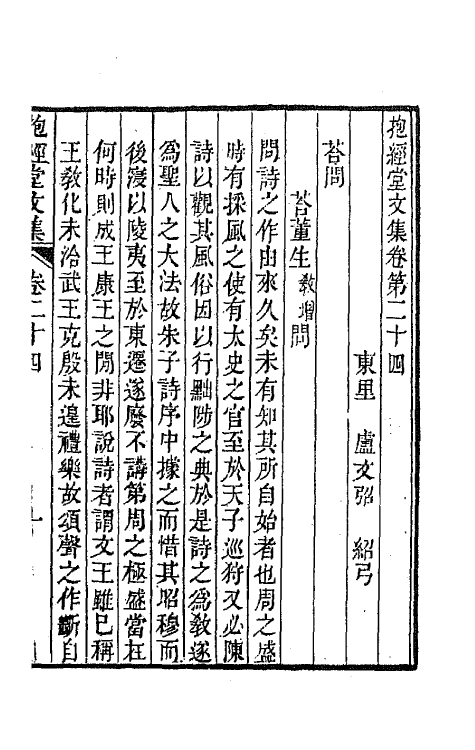 抱經堂文集卷第二十四
東里 盧文弨 紹弓
荅問
荅董生教增問
問詩之作由來久矣未有知其所自始者也周之盛
時有採風之使有太史之官至於天子巡狩又必陳
詩以觀其風俗因以行黜陟之典於是詩之爲敎遂
爲聖人之大法故朱子詩序中據之而惜其昭穆而
後寖以陵夷至於東遷遂廢不講第周之極盛當在
何時則成王康王之閒非耶說詩者謂文王雖已稱
王敎化未洽武王克殷未遑禮樂故頌聲之作斷自
抱經堂文集 卷二十四 一